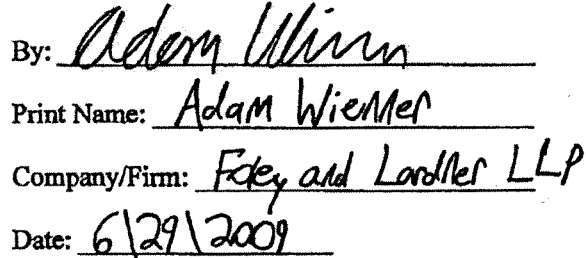 By: Adam
Print Name: Adam Wiemer
Company/Firm: Foley and Lardner LLP
Date: 6\29\2009